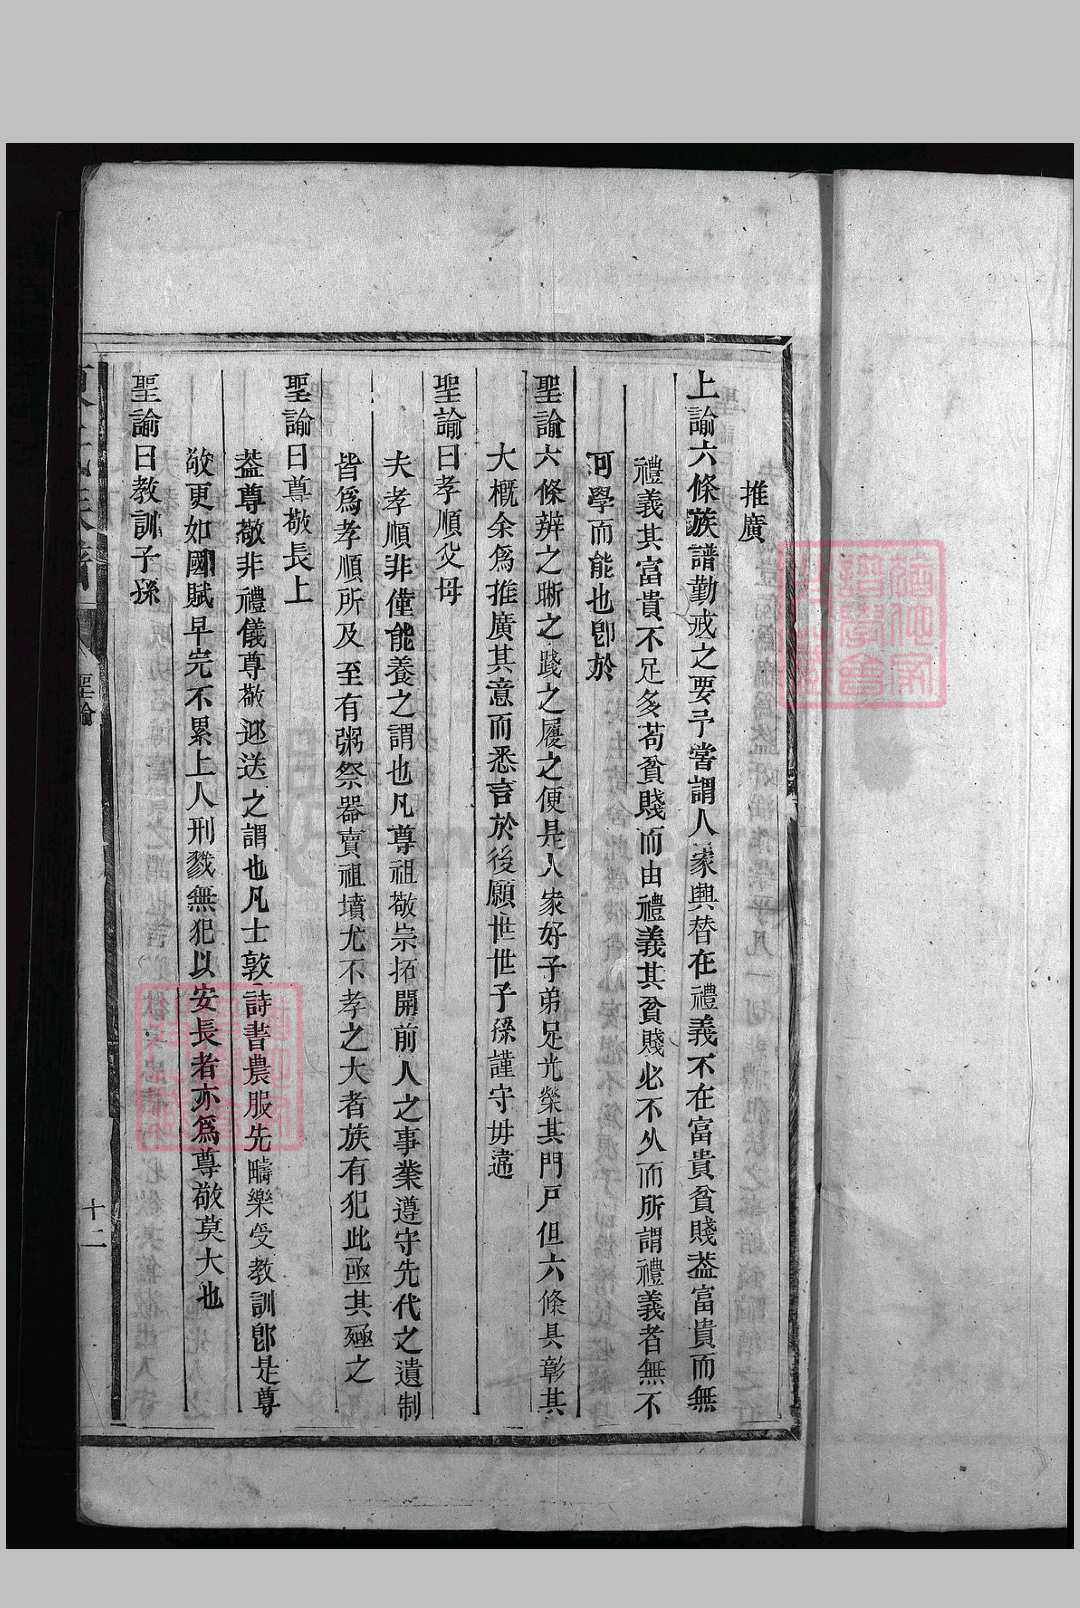 推廣
上諭六條族譜勤戒之要予嘗謂人家興替在禮義不在富貴貧賤葢富貴而無
禮義其富貴不足多苟貧賤而由禮義其貧賤必不久而所謂禮義者無不
可學而能也卽於
聖諭六條辨之晰之踐之履之便是人家好子弟足光榮其門戸但六條具彰其
大概余爲推廣其意而悉言於後願世世子孫謹守毋違
聖諭曰孝順父母
夫孝順非僅能養之謂也凡尊祖敬宗拓開前人之事業遵守先代之遺制
皆爲孝順所及至有粥祭器賣祖墳尤不孝之大者族有犯此亟其殛之
聖諭曰尊敬長上
葢尊敬非禮儀尊敬迎送之謂也凡士敦詩書農服先疇樂受教訓卽是尊
敬更如國賦早完不累上人刑戮無犯以安長者亦爲尊敬莫大也
聖諭曰教訓子孫
聖諭
十二